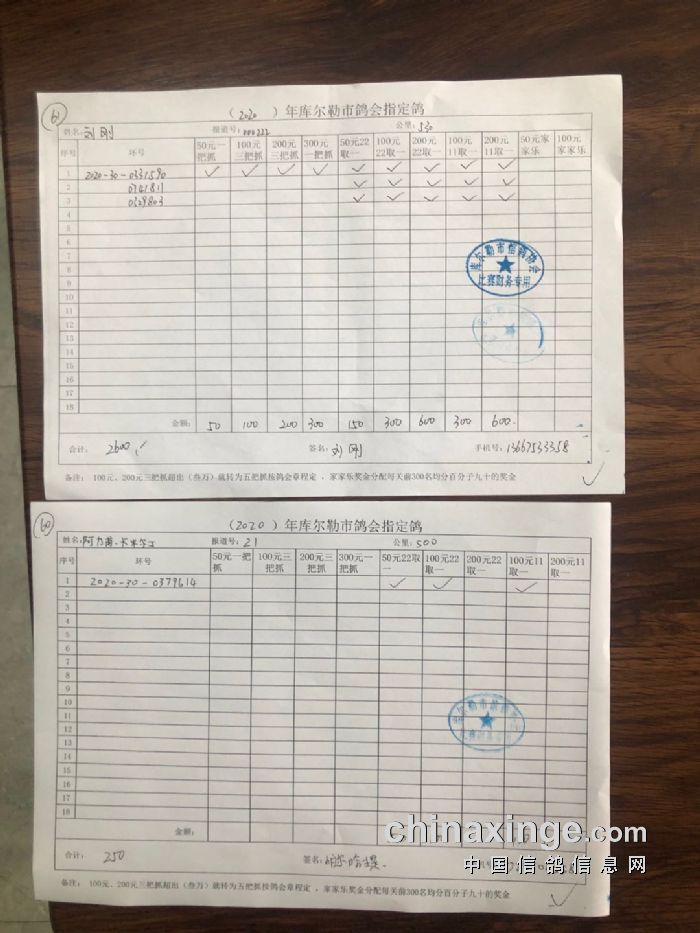 61
（2020）年库尔勒市鸽会指定鸽
姓名: 刘刚 报道号: 000222 公里: 530
序号 环号 50元一把抓 100元三把抓 200元三把抓 300元一把抓 50元22取一 100元22取一 200元22取一 100元11取一 200元11取一 50元家家乐 100元家家乐
1 2020-30-0331590 ✓ ✓ ✓ ✓ ✓ ✓ ✓ ✓ ✓
2 0741811 ✓ ✓ ✓ ✓ ✓
3 0529803 ✓ ✓ ✓ ✓ ✓
4
5
6
7
8
9
10
11
12
13
14
15
16
17
18
库尔勒市信鸽协会
比赛财务专用
金额: 50 100 200 300 150 300 600 300 600
合计: 2600 签名: 刘刚 手机号: 13667533358
备注: 100元、200元三把抓超出（叁万）就转为五把抓按鸽会章程定，家家乐奖金分配每天前300名均分百分子九十的奖金
60
（2020）年库尔勒市鸽会指定鸽
姓名: 报道号: 21 公里: 500
序号 环号 50元一把抓 100元三把抓 200元三把抓 300元一把抓 50元22取一 100元22取一 200元22取一 100元11取一 200元11取一
1 2020-30-0379614 ✓ ✓ ✓
2
3
4
5
6
7
8
9
10
11
12
13
14
15
16
17
18
金额:
合计: 250 签名:
备注: 100元、200元三把抓超出（叁万）就转为五把抓按鸽会章程定，家家乐奖金分配每天前300名均分百分子九十的奖金
chinaxinge.com
中国信鸽信息网